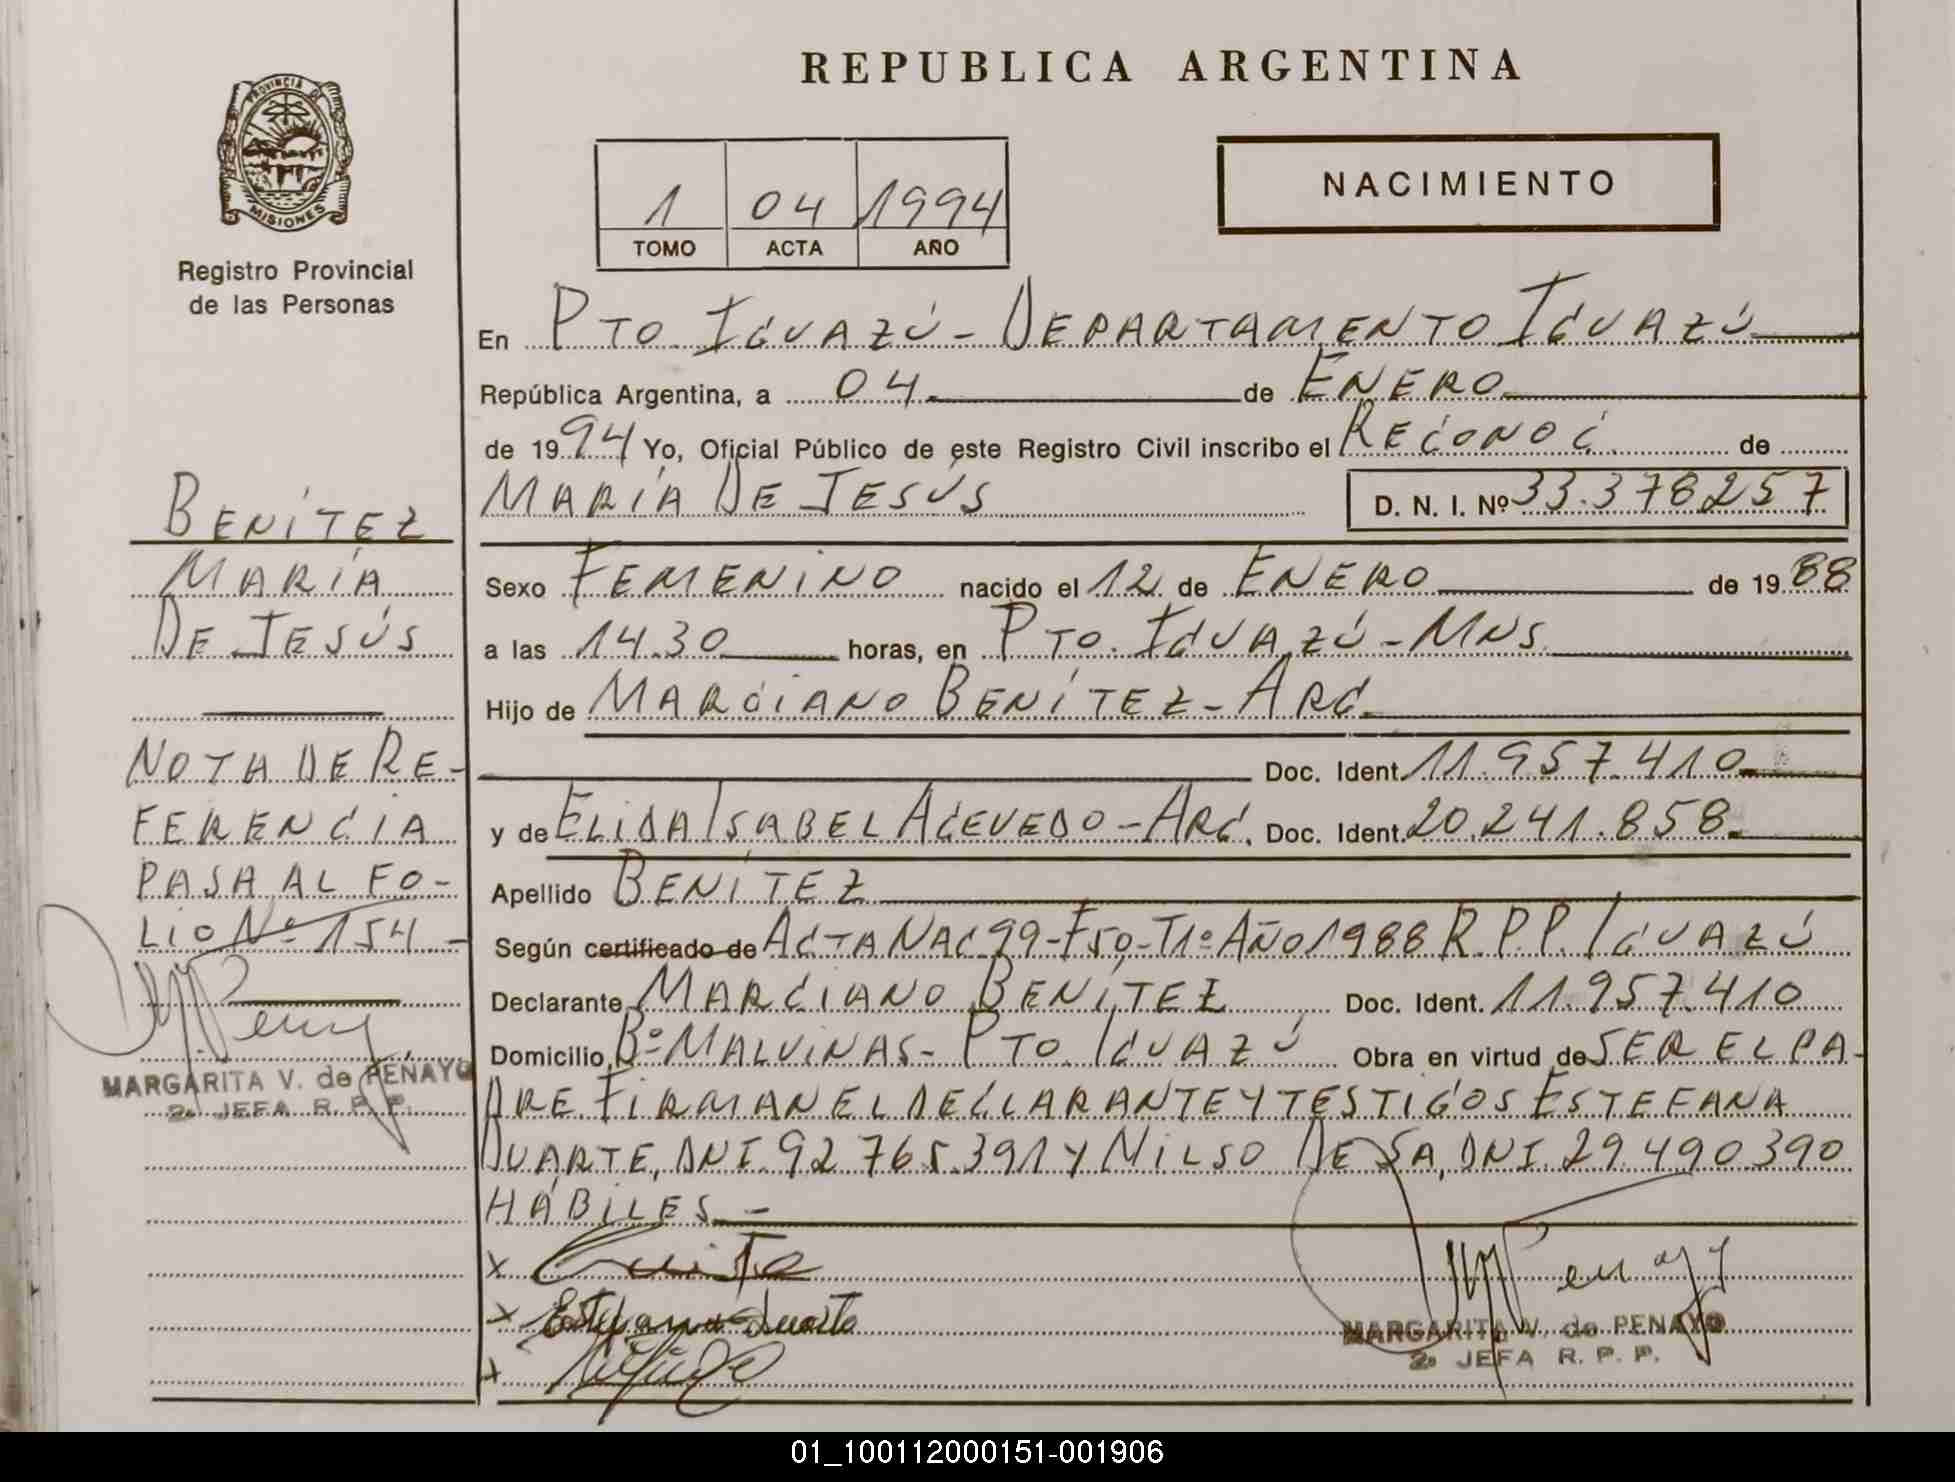 REPUBLICA ARGENTINA
PROVINCIA DE
MISIONES
Registro Provincial
de las Personas
1 04 1994
TOMO ACTA AÑO
NACIMIENTO
En PTO. IGUAZÚ - DEPARTAMENTO IGUAZÚ
República Argentina, a 04 de ENERO
de 1994 Yo, Oficial Público de este Registro Civil inscribo el RECONOC. de
MARÍA DE JESÚS D. N. I. Nº 33.378257
Sexo FEMENINO nacido el 12 de ENERO de 1988
a las 14.30 horas, en PTO. IGUAZÚ - MNS.
Hijo de MARCIANO BENÍTEZ - ARG.
Doc. Ident. 11.957.410
y de ELIDA ISABEL ACEVEDO - ARG. Doc. Ident. 20.241.858.
Apellido BENÍTEZ
Según certificado de ACTA NAC 99-F50-T1º AÑO 1988 R.P.P. IGUAZÚ
Declarante MARCIANO BENÍTEZ Doc. Ident. 11.957.410
Domicilio Bº MALVINAS - PTO. IGUAZÚ Obra en virtud de SER EL PA-
DRE. FIRMAN EL DECLARANTE Y TESTIGOS ESTEFANA
DUARTE, DNI. 92.765.391 Y NILSO DE SA, DNI. 29.490.390
HÁBILES. -
x
x Estefana Duarte
x
MARGARITA V. de PENAYO
2ª JEFA R. P. P.
BENÍTEZ
MARÍA
DE JESÚS
NOTA DE RE-
FERENCIA
PASA AL FO-
LIO Nº 154 -
MARGARITA V. de PENAYO
2ª JEFA R. P. P.
01_100112000151-001906